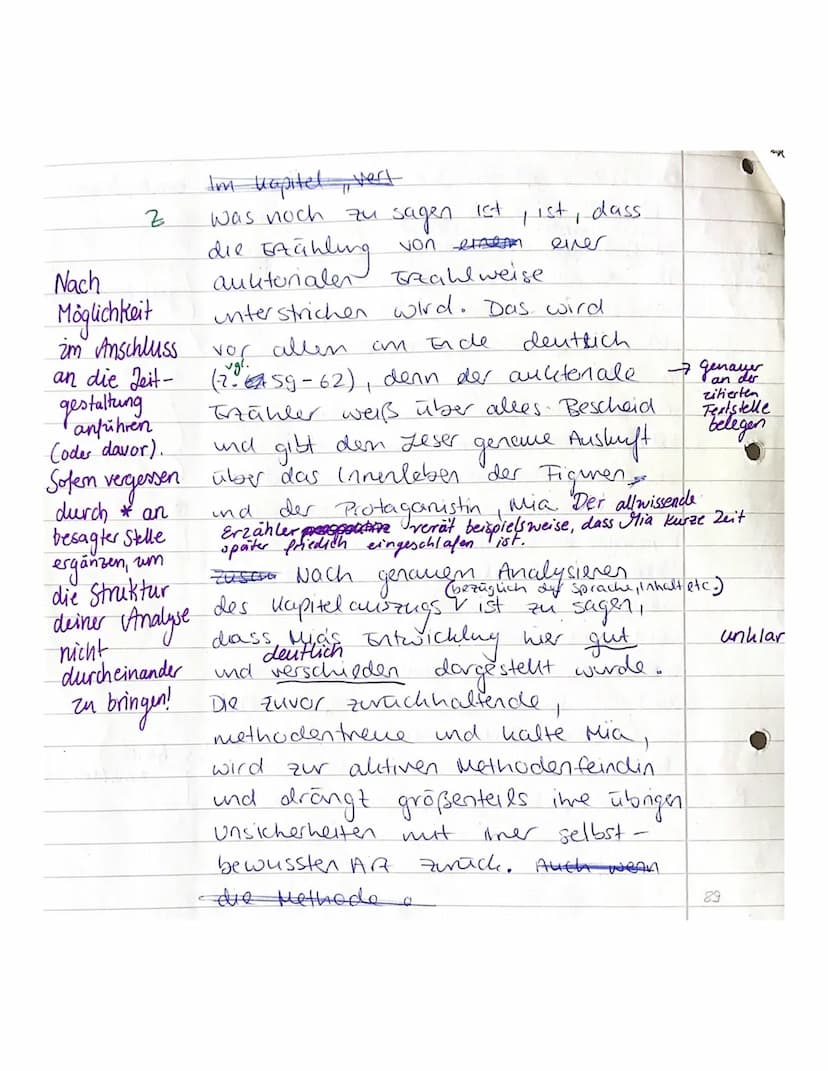 Im Kapitel „vert
Z
Was noch zu sagen ist, ist, dass
die Erzählung von einem einer
auktorialen Erzählweise
unterstrichen wird. Das wird
vor allem am Ende deutlich
vgl.
(Z. 59-62), denn der auktoriale
Erzähler weiß über alles Bescheid
und gibt dem Leser genaue Auskuft
über das Innenleben der Figuren
und der Protaganistin, Mia. Der allwissende
Erzähler verrät beispielsweise, dass Mia kurze Zeit
später friedlich eingeschlafen ist.
Nach genauem Analysieren
(bezüglich der Sprache, Inhalt etc.)
des Kapitelauszugs V ist zu sagen,
dass Mias Entwicklung hier gut
deutlich
und verschieden dargestellt wurde.
Die zuvor zurückhaltende,
methodentreue und kalte Mia,
wird zur aktiven Methodenfeindin
und drängt größenteils ihre übrigen
Unsicherheiten mit ihrer selbst-
bewussten Art zurück. Auch wenn
die Methode
Nach
Möglichkeit
im Anschluss
an die Zeit-
gestaltung
anführen
(oder davor).
Sofern vergessen
durch * an
besagter Stelle
ergänzen, um
die Struktur
deiner Analyse
nicht
durcheinander
zu bringen!
→ genauer
an der
zitierten
Textstelle
belegen
unklar
89